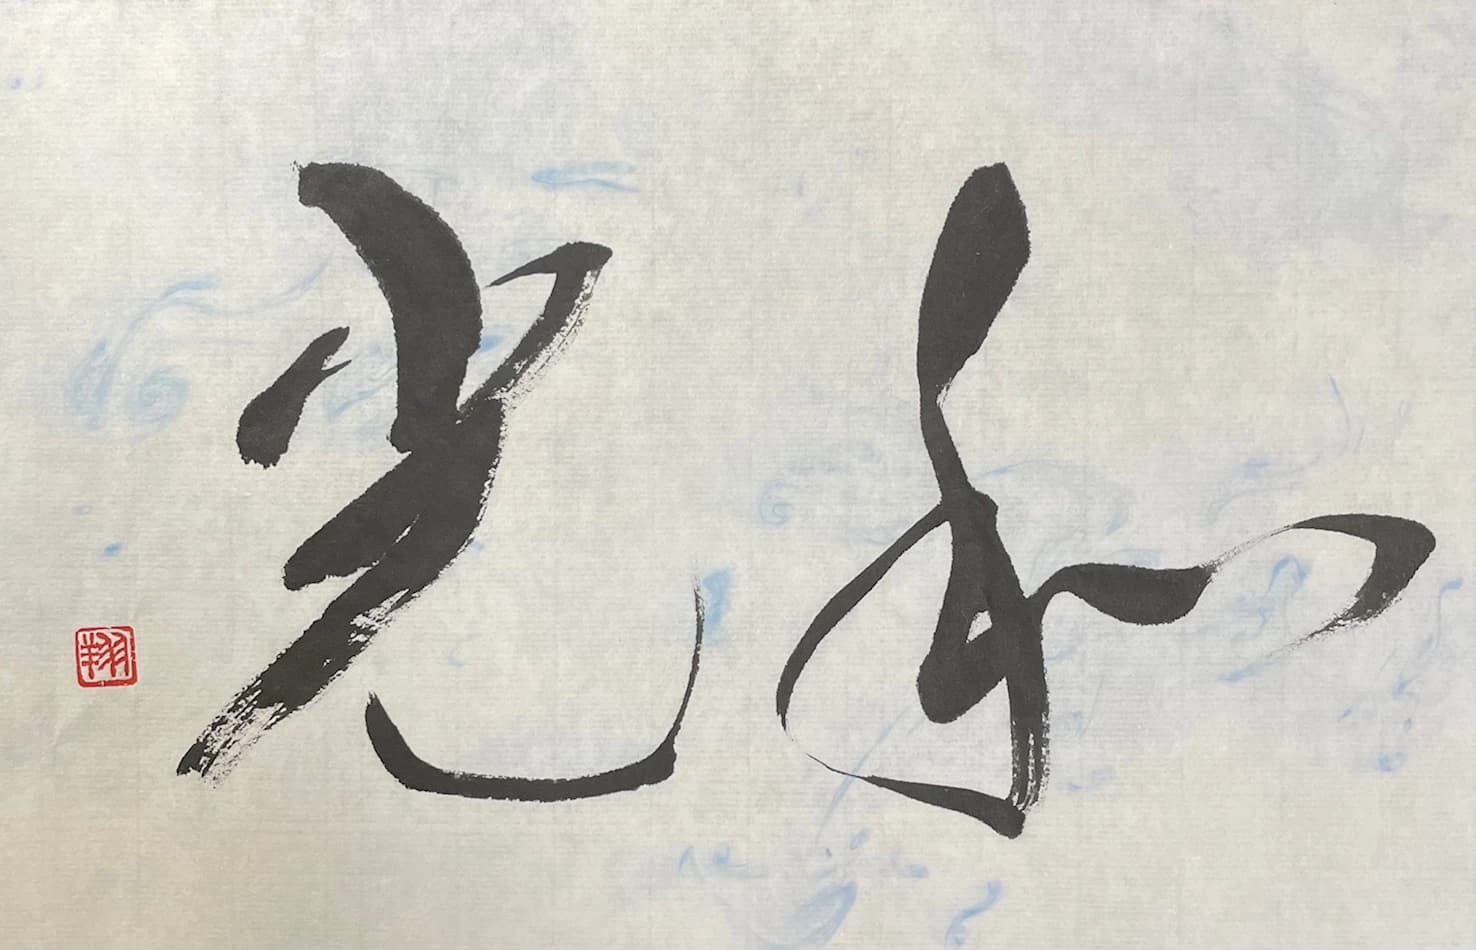 和光
翔